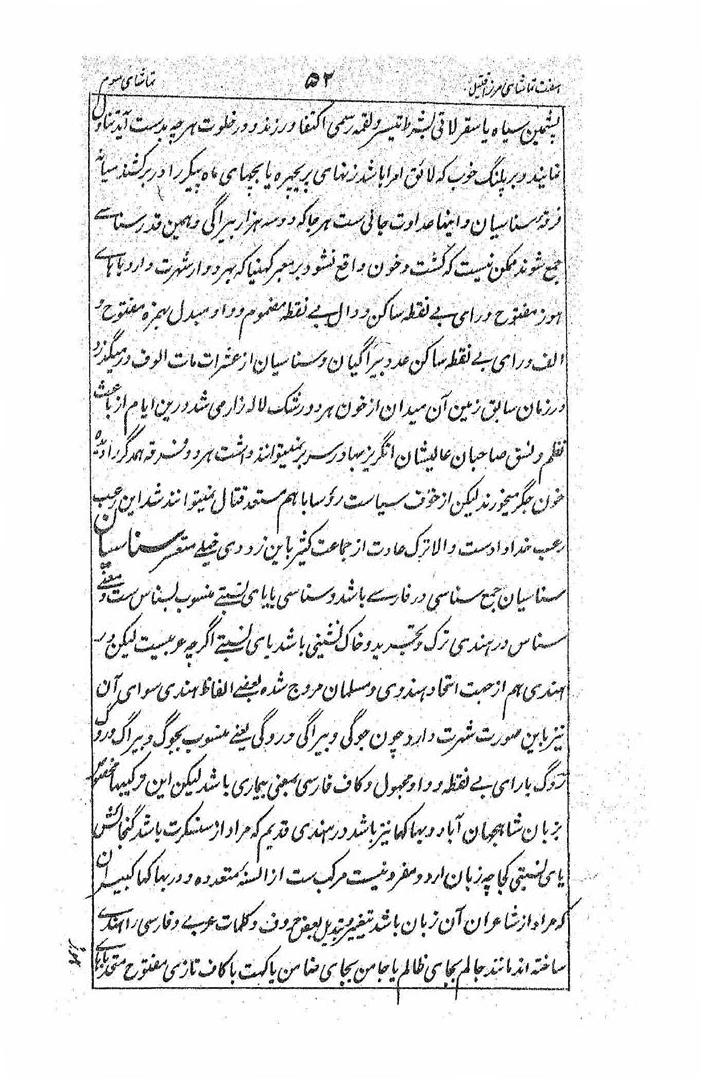 هفت تماشای مرزا قتیل ۵۲ تماشای سوم
پشمین سیاه یا سقرلاتی بشرط تیسر و لقمه رسمی اکتفا ورزند و در خلوت هر چه بدست آید تناول
نمایند و بر پلنگ خوب که لائق امرا باشد زنهای پریچهره یا بچهای ماه پیکر را در بر کشند میانه
فرقهٔ سناسیان و اینها عداوت جانی ست هر جا که دو سه هزار بیراگی و همین قدر سناسے
جمع شوند ممکن نیست که کشت و خون واقع نشود بر معبر گنگا که بهردوار شهرت دارد با هاے
هوز مفتوح و رای بے نقطه ساکن و دال بے نقطه مضموم و واو مبدل بهمزه مفتوح و
الف و رای بے نقطه ساکن عدد بیراگیان و سناسیان از عشرات مات الوف در میگذرد
در زمان سابق زمین آن میدان از خون هر دو رشک لاله زار می شد درین ایام از باعث
نظم و نسق صاحبان عالیشان انگریز بهادر سر بر نمیتوانند داشت هر دو فرقه همدگر را دیده
خون جگر میخورند لیکن از خوف سیاست رؤسا با هم مستعد قتال نمیتوانند شد این رعب
رعب خداداد ست و الا ترک عادت از جماعت کثیر باین زودی خیلے متعسر سناسیان
سناسیان جمع سناسی در فارسے باشد و سناسی بایای نسبتے منسوب بسناس ست و معنے
سناس در هندی ترک و تجرید و خاک نشینی باشد یای نسبتے اگرچه عربیست لیکن در
هندی هم از جهت اتحاد هندوی و مسلمان مروج شده بعضے الفاظ هندی سوای آن
نیز باین صورت شهرت دارد چون جوگی و بیراگی و روگی یعنے منسوب بجوگ و بیراگ و روگ
روگ بارای بے نقطه و واو مجهول و کاف فارسی بمعنی بیماری باشد لیکن این ترکیبها مخصوص
بزبان شاهجهان آباد و بهاکها نیز باشد در هندی قدیم که مراد از سنسکرت باشد گنجائش
یای نسبتی کجا چه زبان اردو مفرد نیست مرکب ست از السنهٔ متعدده و در بهاکها کبیران
که مراد از شاعران آن زبان باشد بتغییر و تبدیل بعض حروف و کلمات عربے و فارسی را هندے
ساخته اند مانند جالم بجای ظالم یا جامن بجای ضامن یا کهت با کاف تازی مفتوح متحد بهاے